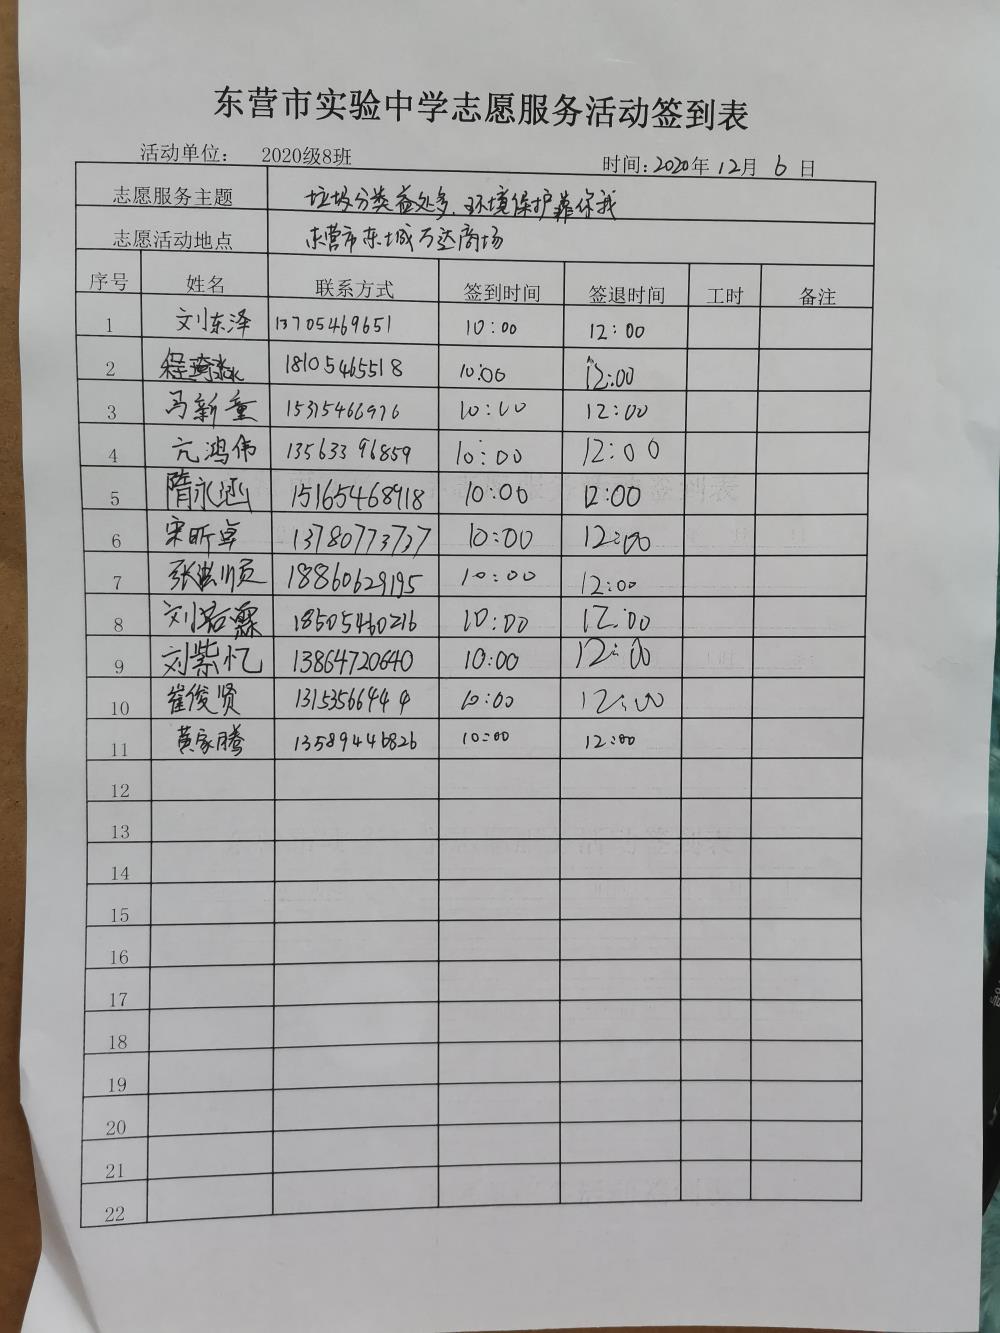 东营市实验中学志愿服务活动签到表
活动单位： 2020级8班 时间：2020年12月6日
志愿服务主题 垃圾分类益处多，环境保护靠你我
志愿活动地点 东营市东城万达商场
序号 姓名 联系方式 签到时间 签退时间 工时 备注
1 刘东泽 13705469651 10:00 12:00
2 程琦淼 18105465518 10:00 12:00
3 马新童 15315466976 10:00 12:00
4 亢鸿伟 13563396859 10:00 12:00
5 隋永涵 15165468918 10:00 12:00
6 宋昕卓 13780773737 10:00 12:00
7 张 顺 18860629195 10:00 12:00
8 刘若霖 18505460216 10:00 12:00
9 刘紫忆 13864720640 10:00 12:00
10 崔俊贤 13153566444 10:00 12:00
11 黄家腾 13589446826 10:00 12:00
12
13
14
15
16
17
18
19
20
21
22